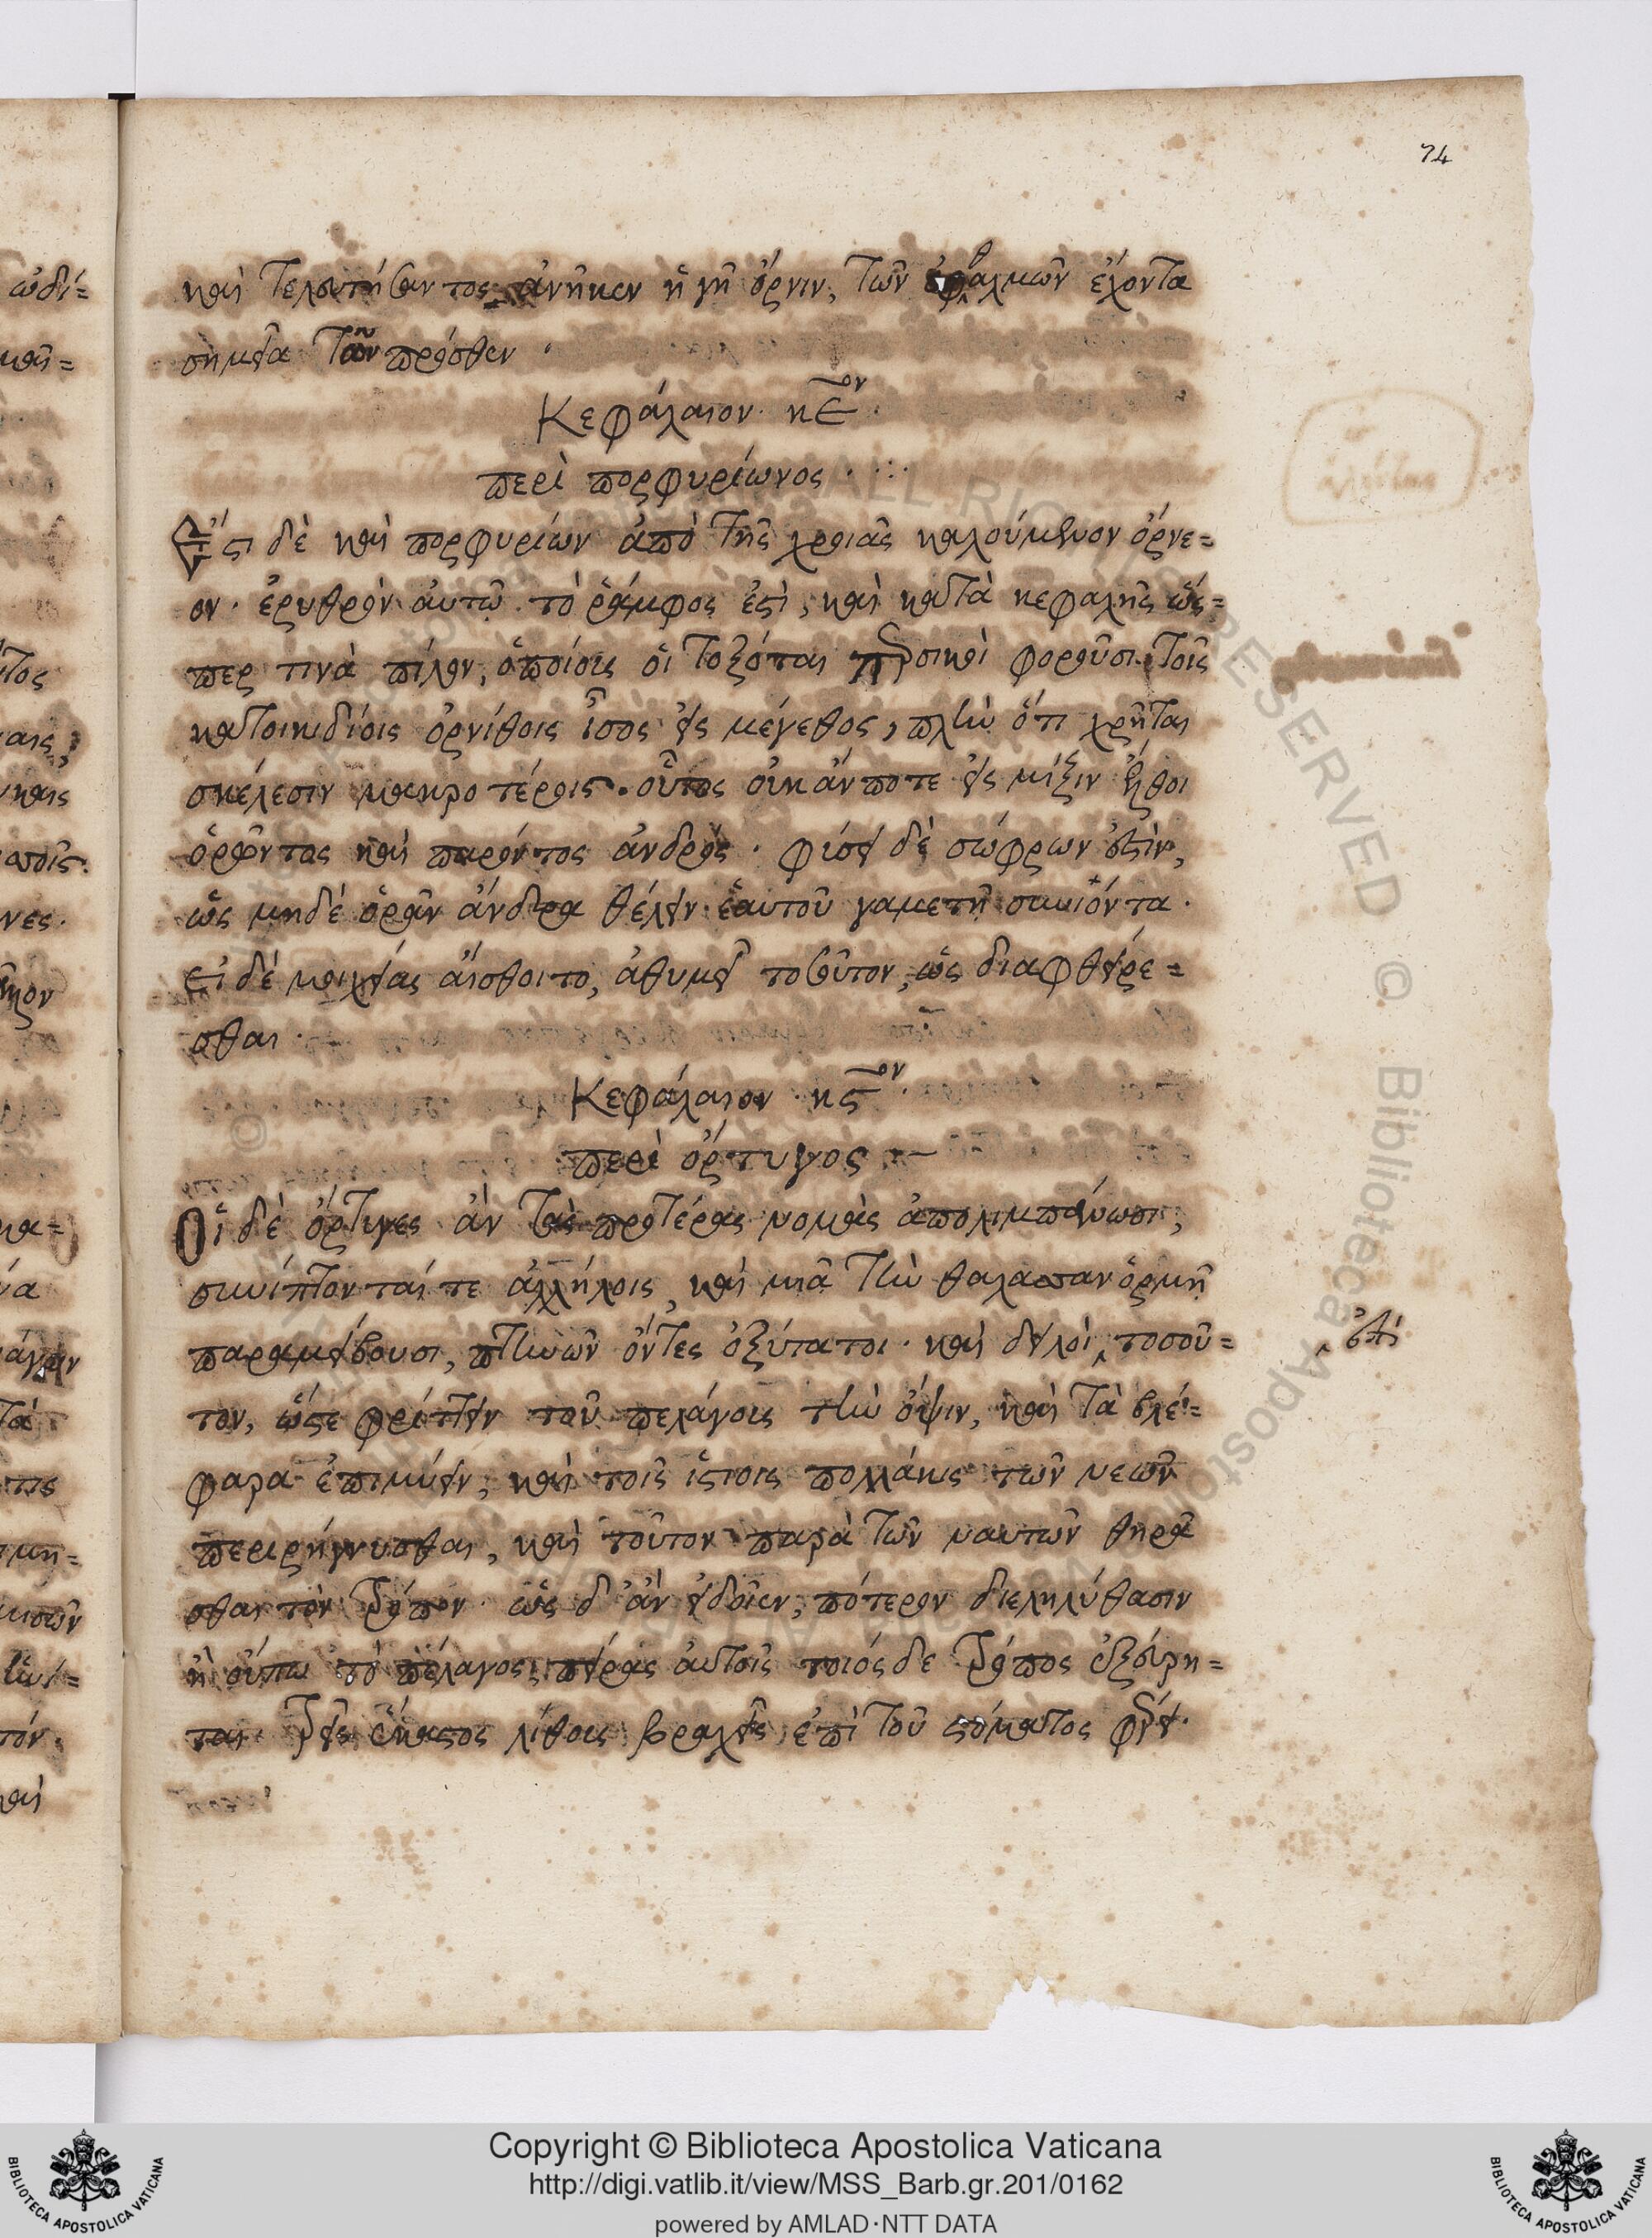 74
καὶ τελευτήσαντος ἀνῆκεν ἡ γῆ ὄρνιν, τῶν ὀφθαλμῶν ἔχοντα
σημεῖα τῶν πρόσθεν ·
Κεφάλαιον κε^ον ·
περὶ πορφυρίωνος ·
Ἔστι δὲ καὶ πορφυρίων ἀπὸ τῆς χροιᾶς καλούμενον ὄρνε=
ον · ἐρυθρὸν αὐτῶ τὸ ῥάμφος ἐστὶ, καὶ κατὰ κεφαλῆς ὥς=
περ τινὰ πίλον, ὁποίοις οἱ τοξόται περσικοὶ φοροῦσι τοῖς
κατοικιδίοις ὀρνίθοις ἶσος εἰς μέγεθος, πλὴν ὅτι χρῆται
σκέλεσιν μακροτέροις · οὗτος οὐκ ἄν ποτε εἰς μίξιν ἔλθοι
ὁρῶντος καὶ παρόντος ἀνδρὸς · φύσει δὲ σώφρων ἐστὶν,
ὡς μηδὲ ὁρᾶν ἄνδρα θέλειν ἑαυτοῦ γαμετῆ συνιόντα ·
εἰ δὲ μοιχείας αἴσθοιτο, ἀθυμεῖ τοσοῦτον, ὡς διαφθείρε=
σθαι ·
Κεφάλαιον κς^ον ·
περὶ ὄρτυγος · —
Οἱ δὲ ὄρτυγες ἂν τὰς προτέρας νομὰς ἀπολιμπάνωσι,
συνίπτονταί τε ἀλλήλοις, καὶ μιᾶ τὴν θάλασσαν ὁρμῆ
παραμείβουσι, πτηνῶν ὄντες ὀξύτατοι · καὶ δειλοὶ ‸ τοσοῦ=
‸ ἐπὶ
τον, ὥστε φρίττειν τοῦ πελάγους τὴν ὄψιν, καὶ τὰ βλέ=
φαρα ἐπιμύειν, καὶ τοῖς ἱστοῖς πολλάκις τῶν νεῶν
περιρήγνυσθαι, καὶ τοῦτον παρὰ τῶν ναυτῶν θηρᾶ
σθαι τὸν τρόπον · ὡς δ' ἂν εἰδοῖεν, πότερον διεληλύθασιν
ἢ οὔπω τὸ πέλαγος, πείρας αὐτοῖς τοιός δε τρόπος ἐξεύρη=
ται · τρεῖς ἕκαστος λίθους βραχεῖς ἐπὶ τοῦ στόματος φέρει ·
Copyright © Biblioteca Apostolica Vaticana
http://digi.vatlib.it/view/MSS_Barb.gr.201/0162
powered by AMLAD·NTT DATA